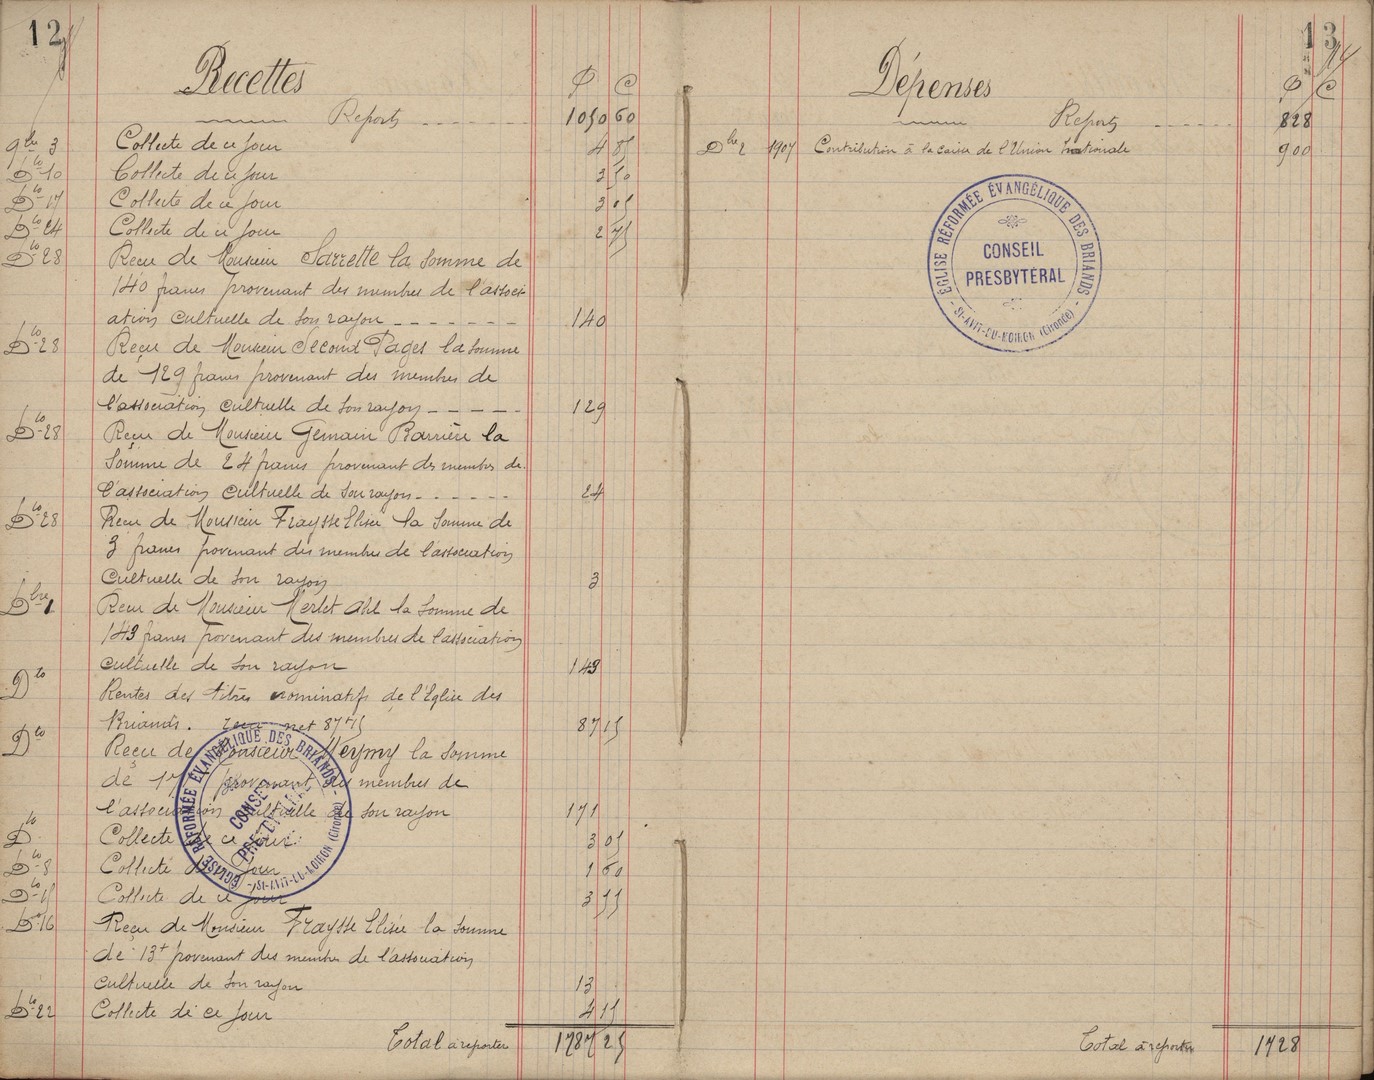 12
Recettes
F C
Reports 1050 60
9bre 3 Collecte de ce jour 4 85
Dto 10 Collecte de ce jour 3 50
Dto 17 Collecte de ce jour 3 05
Dto 24 Collecte de ce jour 2 75
Dto 28 Reçu de Monsieur Sarrette la somme de
140 francs provenant des membres de l'associ-
ation cultuelle de son rayon 140
Dto 28 Reçu de Monsieur Second Pagès la somme
de 129 francs provenant des membres de
l'association cultuelle de son rayon 129
Dto 28 Reçu de Monsieur Germain Barrière la
somme de 24 francs provenant des membres de
l'association cultuelle de son rayon 24
Dto 28 Reçu de Monsieur Fraysse Elisée la somme de
3 francs provenant des membres de l'association
cultuelle de son rayon 3
Dbre 1 Reçu de Monsieur Merlet la somme de
143 francs provenant des membres de l'association
cultuelle de son rayon 143
Dto Rentes des titres nominatifs de l'Eglise des
Briands. net 87 75 87 15
Dto Reçu de Monsieur Meymy la somme
de 17 provenant des membres de
l'association cultuelle de son rayon 171
Dto Collecte de ce jour 3 05
Dto 8 Collecte de ce jour 1 60
Dto 15 Collecte de ce jour 3 55
Dto 16 Reçu de Monsieur Fraysse Elisée la somme
de 13f provenant des membres de l'association
cultuelle de son rayon 13
Dto 22 Collecte de ce jour 4 15
Total à reporter 1787 25
ÉGLISE RÉFORMÉE ÉVANGÉLIQUE DES BRIANDS
CONSEIL
PRESBYTÉRAL
St-AVIT-DU-MOIRON (Gironde)
13
14
Dépenses
F C
Reports 828
Dbre 2 1907 Contribution à la caisse de l'Union nationale 900
ÉGLISE RÉFORMÉE ÉVANGÉLIQUE DES BRIANDS
CONSEIL
PRESBYTÉRAL
St-AVIT-DU-MOIRON (Gironde)
Total à reporter 1728